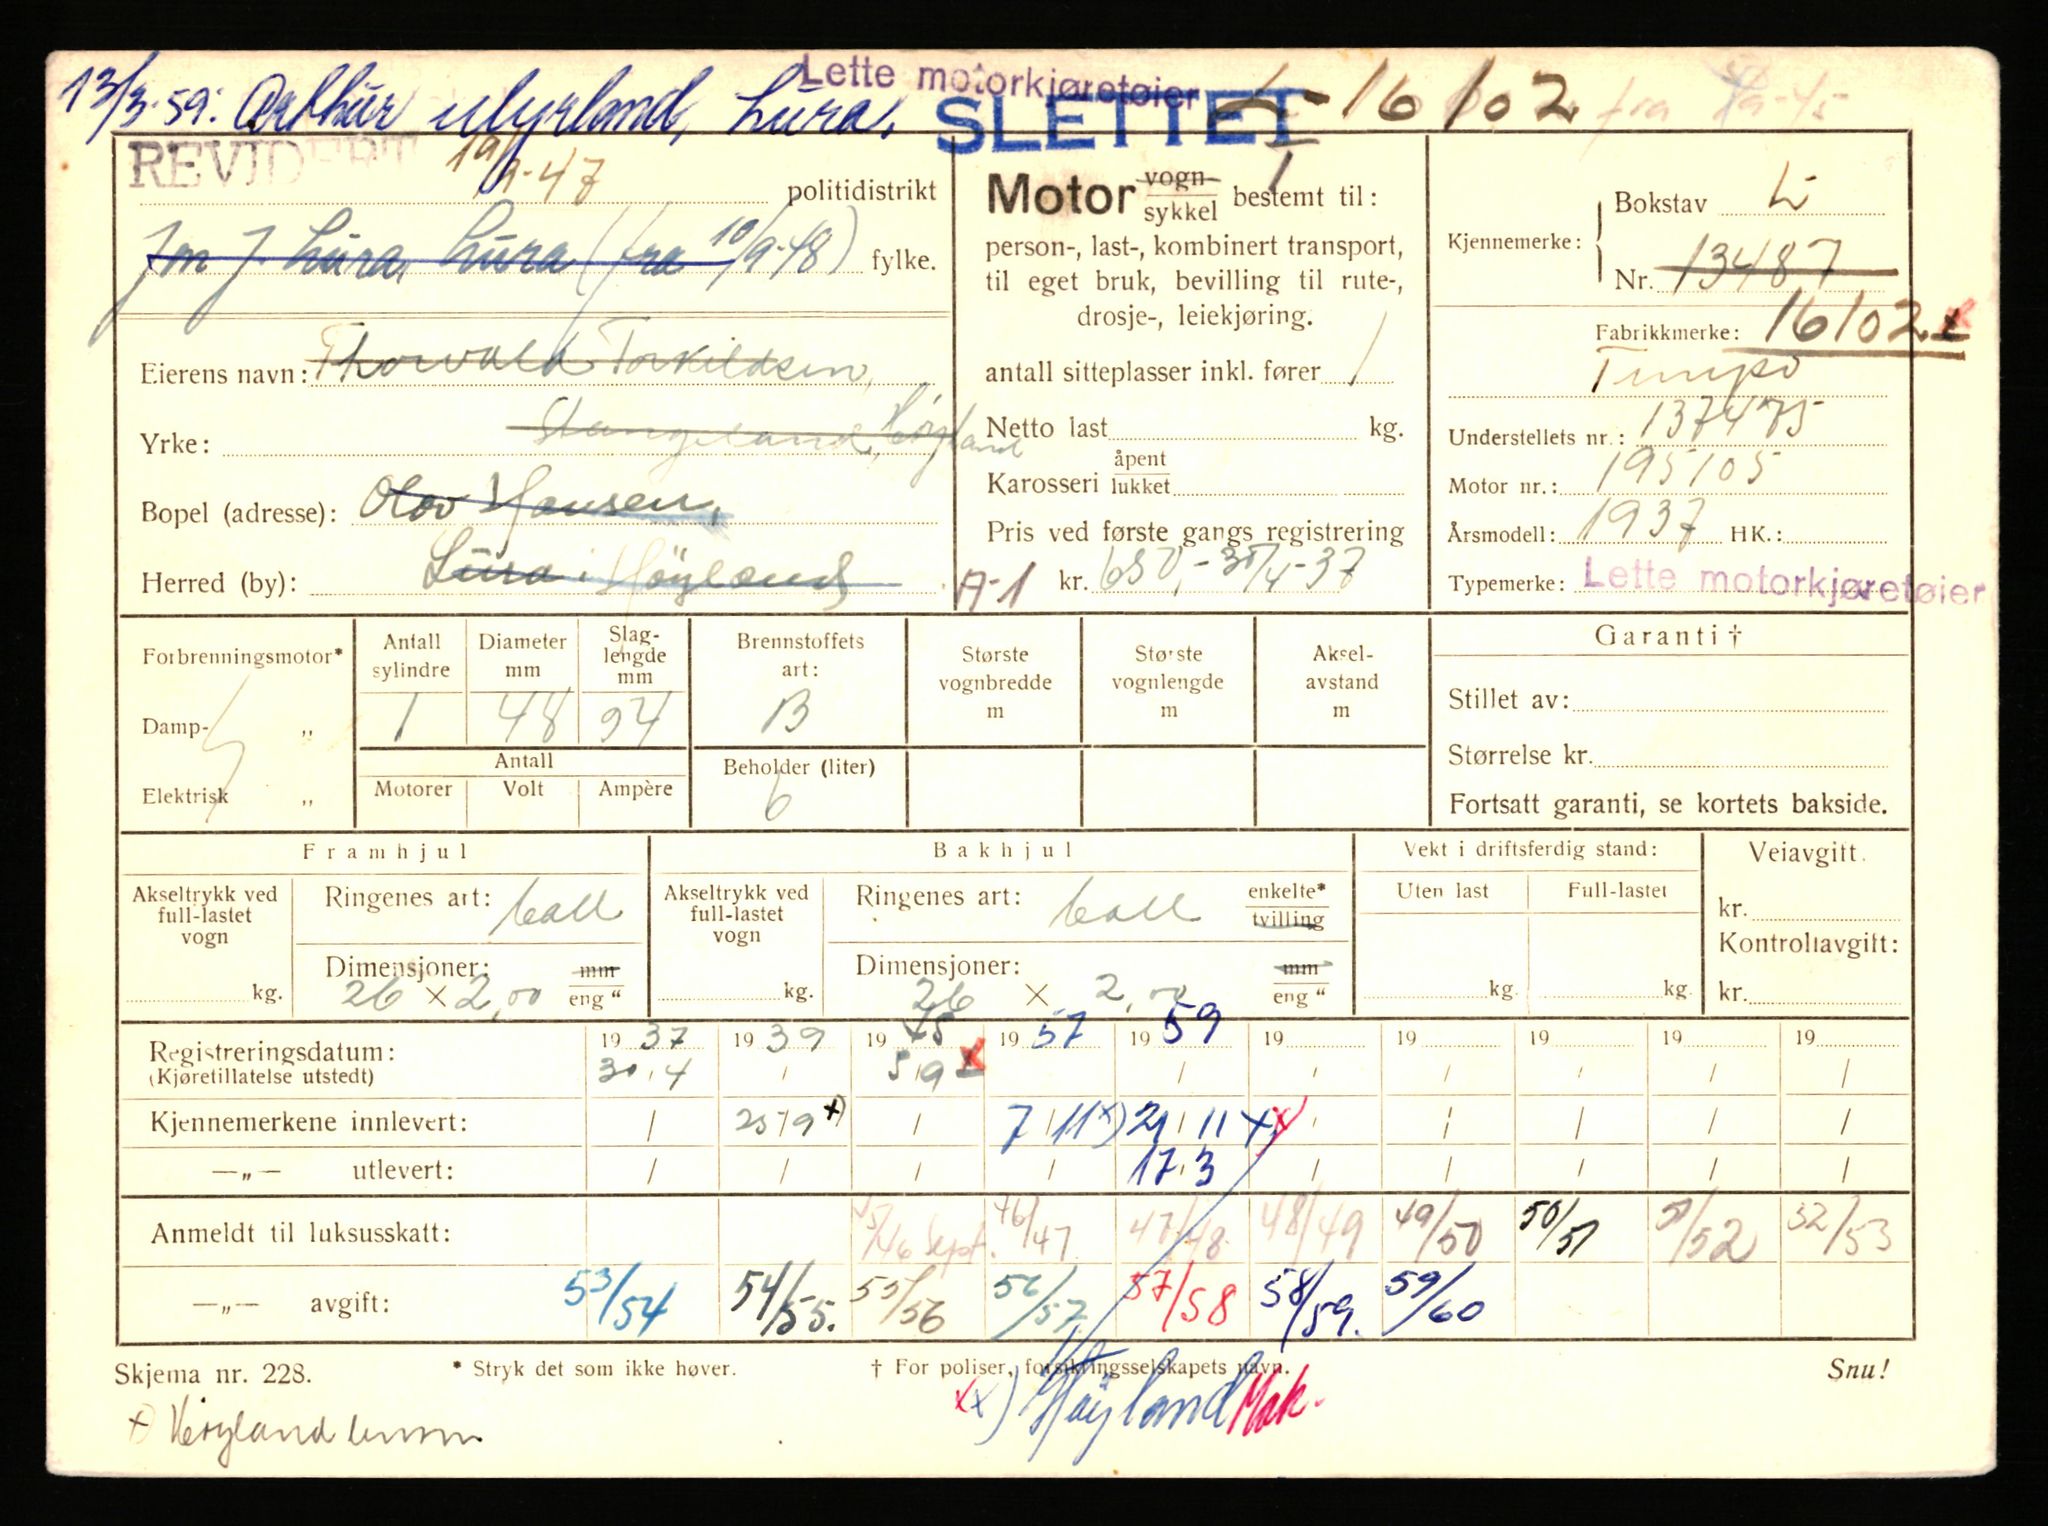 Lette motorkjøretøier
13/3-59: Arthur Myrland, Lura,
SLETTET
L-16102 fra 5/9-45
REVIDERT 19/-47
politidistrikt
Jon J. Lura, Lura (fra 10/9-48) fylke.
Eierens navn: Thorvald Torkildsen,
Yrke: Stangeland, Høyland
Bopel (adresse): Olav Hansen,
Herred (by): Lura i Høyland
Motor vogn sykkel bestemt til:
person-, last-, kombinert transport,
til eget bruk, bevilling til rute-,
drosje-, leiekjøring.
antall sitteplasser inkl. fører 1
Netto last kg.
Karosseri åpent lukket
Pris ved første gangs registrering
A-1 kr. 650,- 30/4-37
Kjennemerke: Bokstav L
Nr. 13487
16102 x
Fabrikkmerke:
Tempo
Understellets nr.: 137475
Motor nr.: 195105
Årsmodell: 1937 HK.:
Typemerke: Lette motorkjøretøier
Forbrenningsmotor*
Damp- „
Elektrisk „
Antall sylindre 1
Diameter mm 48
Slaglengde mm 94
Antall
Motorer Volt Ampère
Brennstoffets art: B
Beholder (liter) 6
Største vognbredde m
Største vognlengde m
Aksel-avstand m
Garanti †
Stillet av:
Størrelse kr.
Fortsatt garanti, se kortets bakside.
Framhjul
Akseltrykk ved full-lastet vogn kg.
Ringenes art: ball
Dimensjoner: mm eng "
26 x 2,00
Bakhjul
Akseltrykk ved full-lastet vogn kg.
Ringenes art: ball enkelte* tvilling
Dimensjoner: mm eng "
26 x 2,00
Vekt i driftsferdig stand:
Uten last Full-lastet
kg. kg.
Veiavgift.
kr.
Kontrollavgift:
kr.
Registreringsdatum: 1937 1939 1945 1957 1959 19 19 19 19 19
(Kjøretillatelse utstedt) 30/4 / 5/9 x / / / / / /
Kjennemerkene innlevert: / 25/9 x) / 7/11 x) 21/11 xx / / / / /
—„— utlevert: / / / / 17/3 / / / / /
Anmeldt til luksusskatt: 45/46 Sept. 46/47 47/48 48/49 49/50 50/51 51/52 52/53
—„— avgift: 53/54 54/55. 55/56 56/57 57/58 58/59. 59/60
Skjema nr. 228.
* Stryk det som ikke høver.
† For poliser, forsikringsselskapets navn.
Snu!
x) Høyland lensm
xx) Høyland Mak.